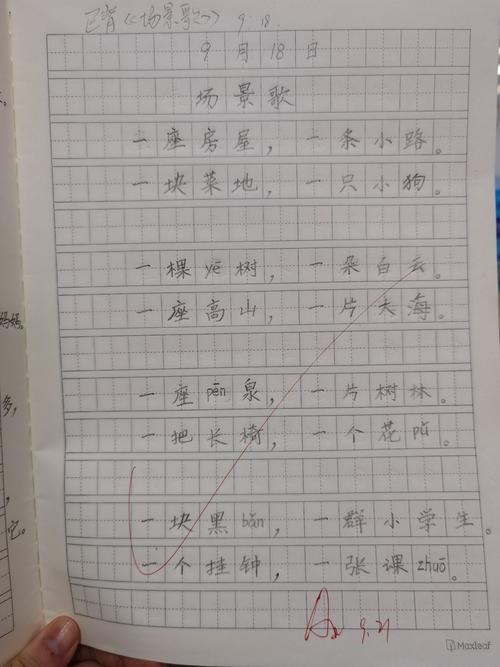 已背《场景歌》 9.18.
9月18日
场景歌
一座房屋，一条小路。
一块菜地，一只小狗。
一棵yē树，一朵白云。
一座高山，一片大海。
一座pēn泉，一片树林。
一把长椅，一个花pǔ。
一块黑bǎn，一群小学生。
一个挂钟，一张课zhuō。
9.21
Maxleaf
妈妈。
多，
它。